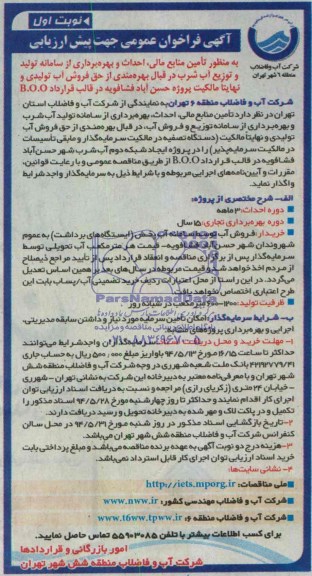 نوبت اول
آگهی فراخوان عمومی جهت پیش ارزیابی
شرکت آب و فاضلاب
منطقه ۶ شهر تهران
به منظور تأمین منابع مالی، احداث و بهره‌برداری از سامانه تولید
و توزیع آب شرب در قبال بهره‌مندی از حق فروش آب تولیدی و
نهایتا مالکیت پروژه حسن آباد فشافویه در قالب قرارداد B.O.O
شرکت آب و فاضلاب منطقه ۶ تهران به نمایندگی از شرکت آب و فاضلاب استان
تهران در نظر دارد تأمین منابع مالی، احداث، بهره‌برداری از سامانه تولید آب شرب
و بهره‌برداری از سامانه توزیع و فروش آب، در قبال بهره‌مندی از حق فروش آب
تولیدی و نهایتا مالکیت (دستگاه تصفیه در مالکیت سرمایه‌گذار و مابقی تأسیسات
در مالکیت سرمایه‌پذیر) را در پروژه ایجاد شبکه دوم آب شرب شهر حسن‌آباد
فشافویه در قالب قرارداد B.O.O از طریق مناقصه عمومی و با رعایت قوانین،
مقررات و آیین‌نامه‌های اجرایی مربوطه و با شرایط ذیل به سرمایه‌گذار واجد شرایط
واگذار نماید.
الف- شرح مختصری از پروژه:
دوره احداث: ۳ ماهه
دوره بهره‌برداری تجاری: ۱۵ سال
خریدار: فروش آب توسط سامانه آب رسان (ایستگاه‌های برداشت) به عموم
شهروندان شهر حسن آباد فشافویه- قیمت هر مترمکعب آب تحویلی توسط
سرمایه‌گذار پس از برگزاری مناقصه و انعقاد قرارداد پس از تأیید مراجع ذیصلاح
از مردم اخذ خواهد شد و قیمت مربوطه در سال‌های بعد بر همین اساس تعدیل
می‌گردد. در این راستا از محل اعتبارات ردیف خرید تضمینی آب/پساب بابت این
طرح اعتباری اختصاص نخواهد یافت.
ظرفیت تولید: ۲۰۰-۴۰۰ متر مکعب در شبانه روز
ب- شرایط سرمایه‌گذار: امکان تأمین سرمایه مورد نیاز و داشتن سابقه مدیریتی،
اجرایی و بهره‌برداری پروژه‌های مشابه
۱- مهلت خرید و محل دریافت اسناد: سرمایه‌گذاران واجد شرایط می‌توانند
حداکثر تا ساعت ۱۶/۱۵ مورخ ۹۴/۵/۱۳ با واریز مبلغ ۵۰۰,۰۰۰ ریال به حساب جاری
بانک ملت شعبه شهرری در وجه شرکت آب و فاضلاب منطقه شش
شهر تهران و با معرفی‌نامه معتبر به دبیرخانه این شرکت به نشانی تهران - شهرری
- خیابان ۲۴ متری (زکریای رازی) مراجعه و نسبت به دریافت اسناد ارزیابی توان
اجرای کار اقدام نمایند و حداکثر تا روز چهارشنبه مورخ ۹۴/۵/۲۸ اسناد مذکور را
تکمیل و در پاکت لاک و مهر شده به دبیرخانه تحویل و رسید دریافت دارند.
۲- تاریخ بازگشایی اسناد مذکور در روز شنبه مورخ ۹۴/۵/۳۱ در محل سالن
کنفرانس شرکت آب و فاضلاب منطقه شش شهر تهران می‌باشد.
۳- هزینه درج دو نوبت آگهی به عهده برنده مناقصه می‌باشد و مبلغ پرداختی بابت
خرید اسناد ارزیابی توان اجرای کار قابل استرداد نمی‌باشد.
۴- نشانی سایت‌ها:
ملی مناقصات: http://iets.mporg.ir
شرکت آب و فاضلاب مهندسی کشور: www.nww.ir
شرکت آب و فاضلاب منطقه ۶: www.t6ww.tpww.ir
برای کسب اطلاعات بیشتر با تلفن ۵۵۹۰۳۰۸۵ تماس حاصل نمایید.
امور بازرگانی و قراردادها
شرکت آب و فاضلاب منطقه شش شهر تهران
ParsNamadData